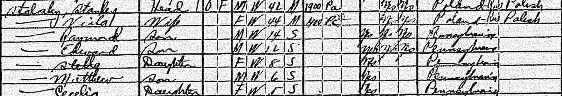 Stanley Head O F M W 42 M 1900 Pa Poland Rus Polish
Viola Wife F W 44 M 1900 Poland Rus Polish
Raymond Son M W 14 S Yes Yes Yes Pennsylvania
Edward Son M W 12 S Yes Yes Pennsylvania
Stella Daughter F W 8 S Yes Pennsylvania
Matthew Son M W 6 S Yes Pennsylvania
Cecelia Daughter F W 5 S Yes Pennsylvania